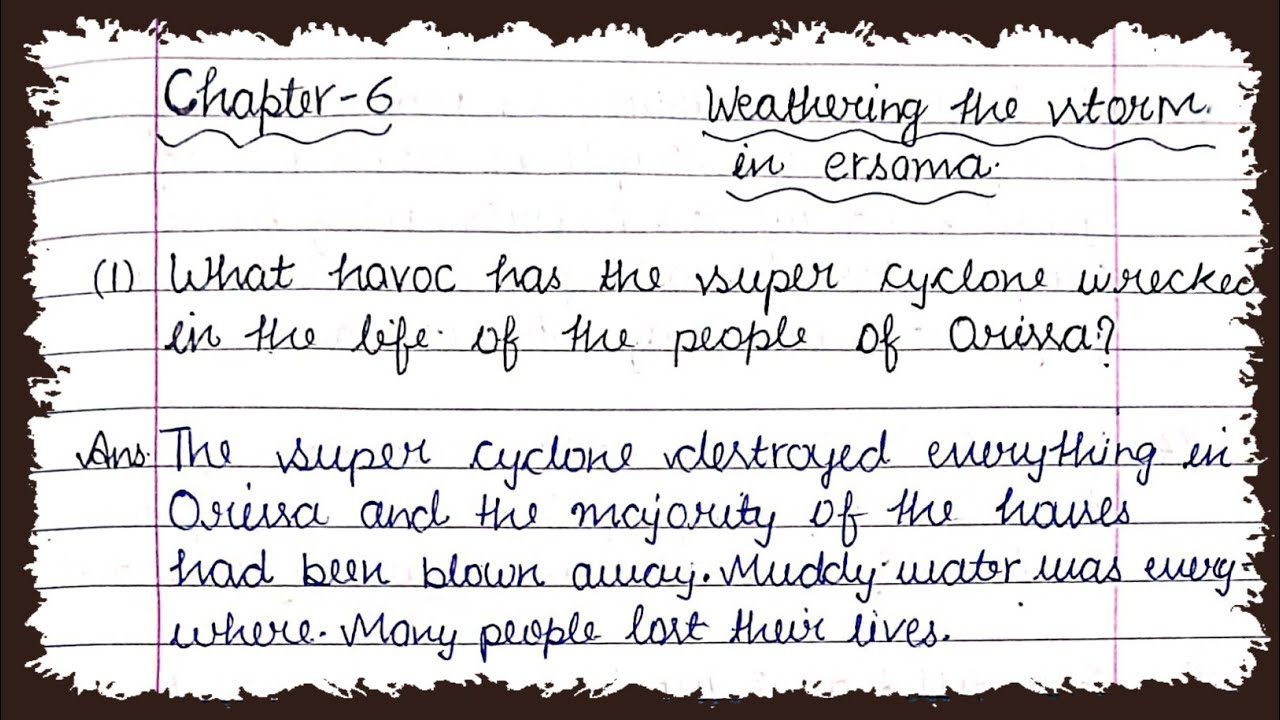 Chapter-6
Weathering the storm.
in ersama.
(1) What havoc has the super cyclone wrecked
in the life of the people of Orissa?
Ans. The super cyclone destroyed everything in
Orissa and the majority of the houses
had been blown away. Muddy water was every-
where. Many people lost their lives.